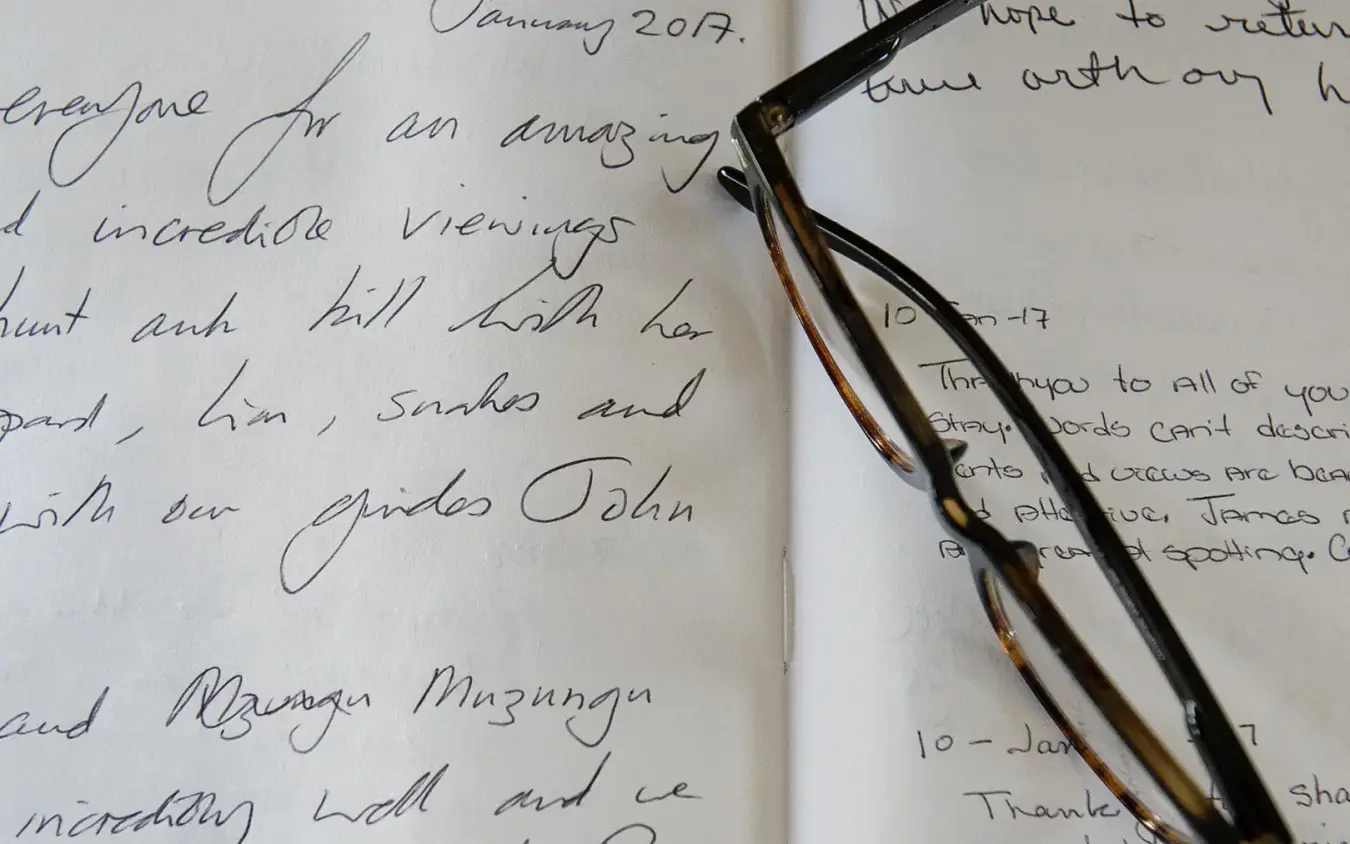 January 2017.
everyone for an amazing
d incredible viewings
hunt and kill with her
pard, lion, snakes and
with our guides John
and Mzungu Muzungu
incredibly well and we
hope to retur
time with our h
10 Jan-17
Thankyou to All of you
Stay. Words can't descri
and views are
Attentive. James
spotting.
10 - Jan 7
Thank sha